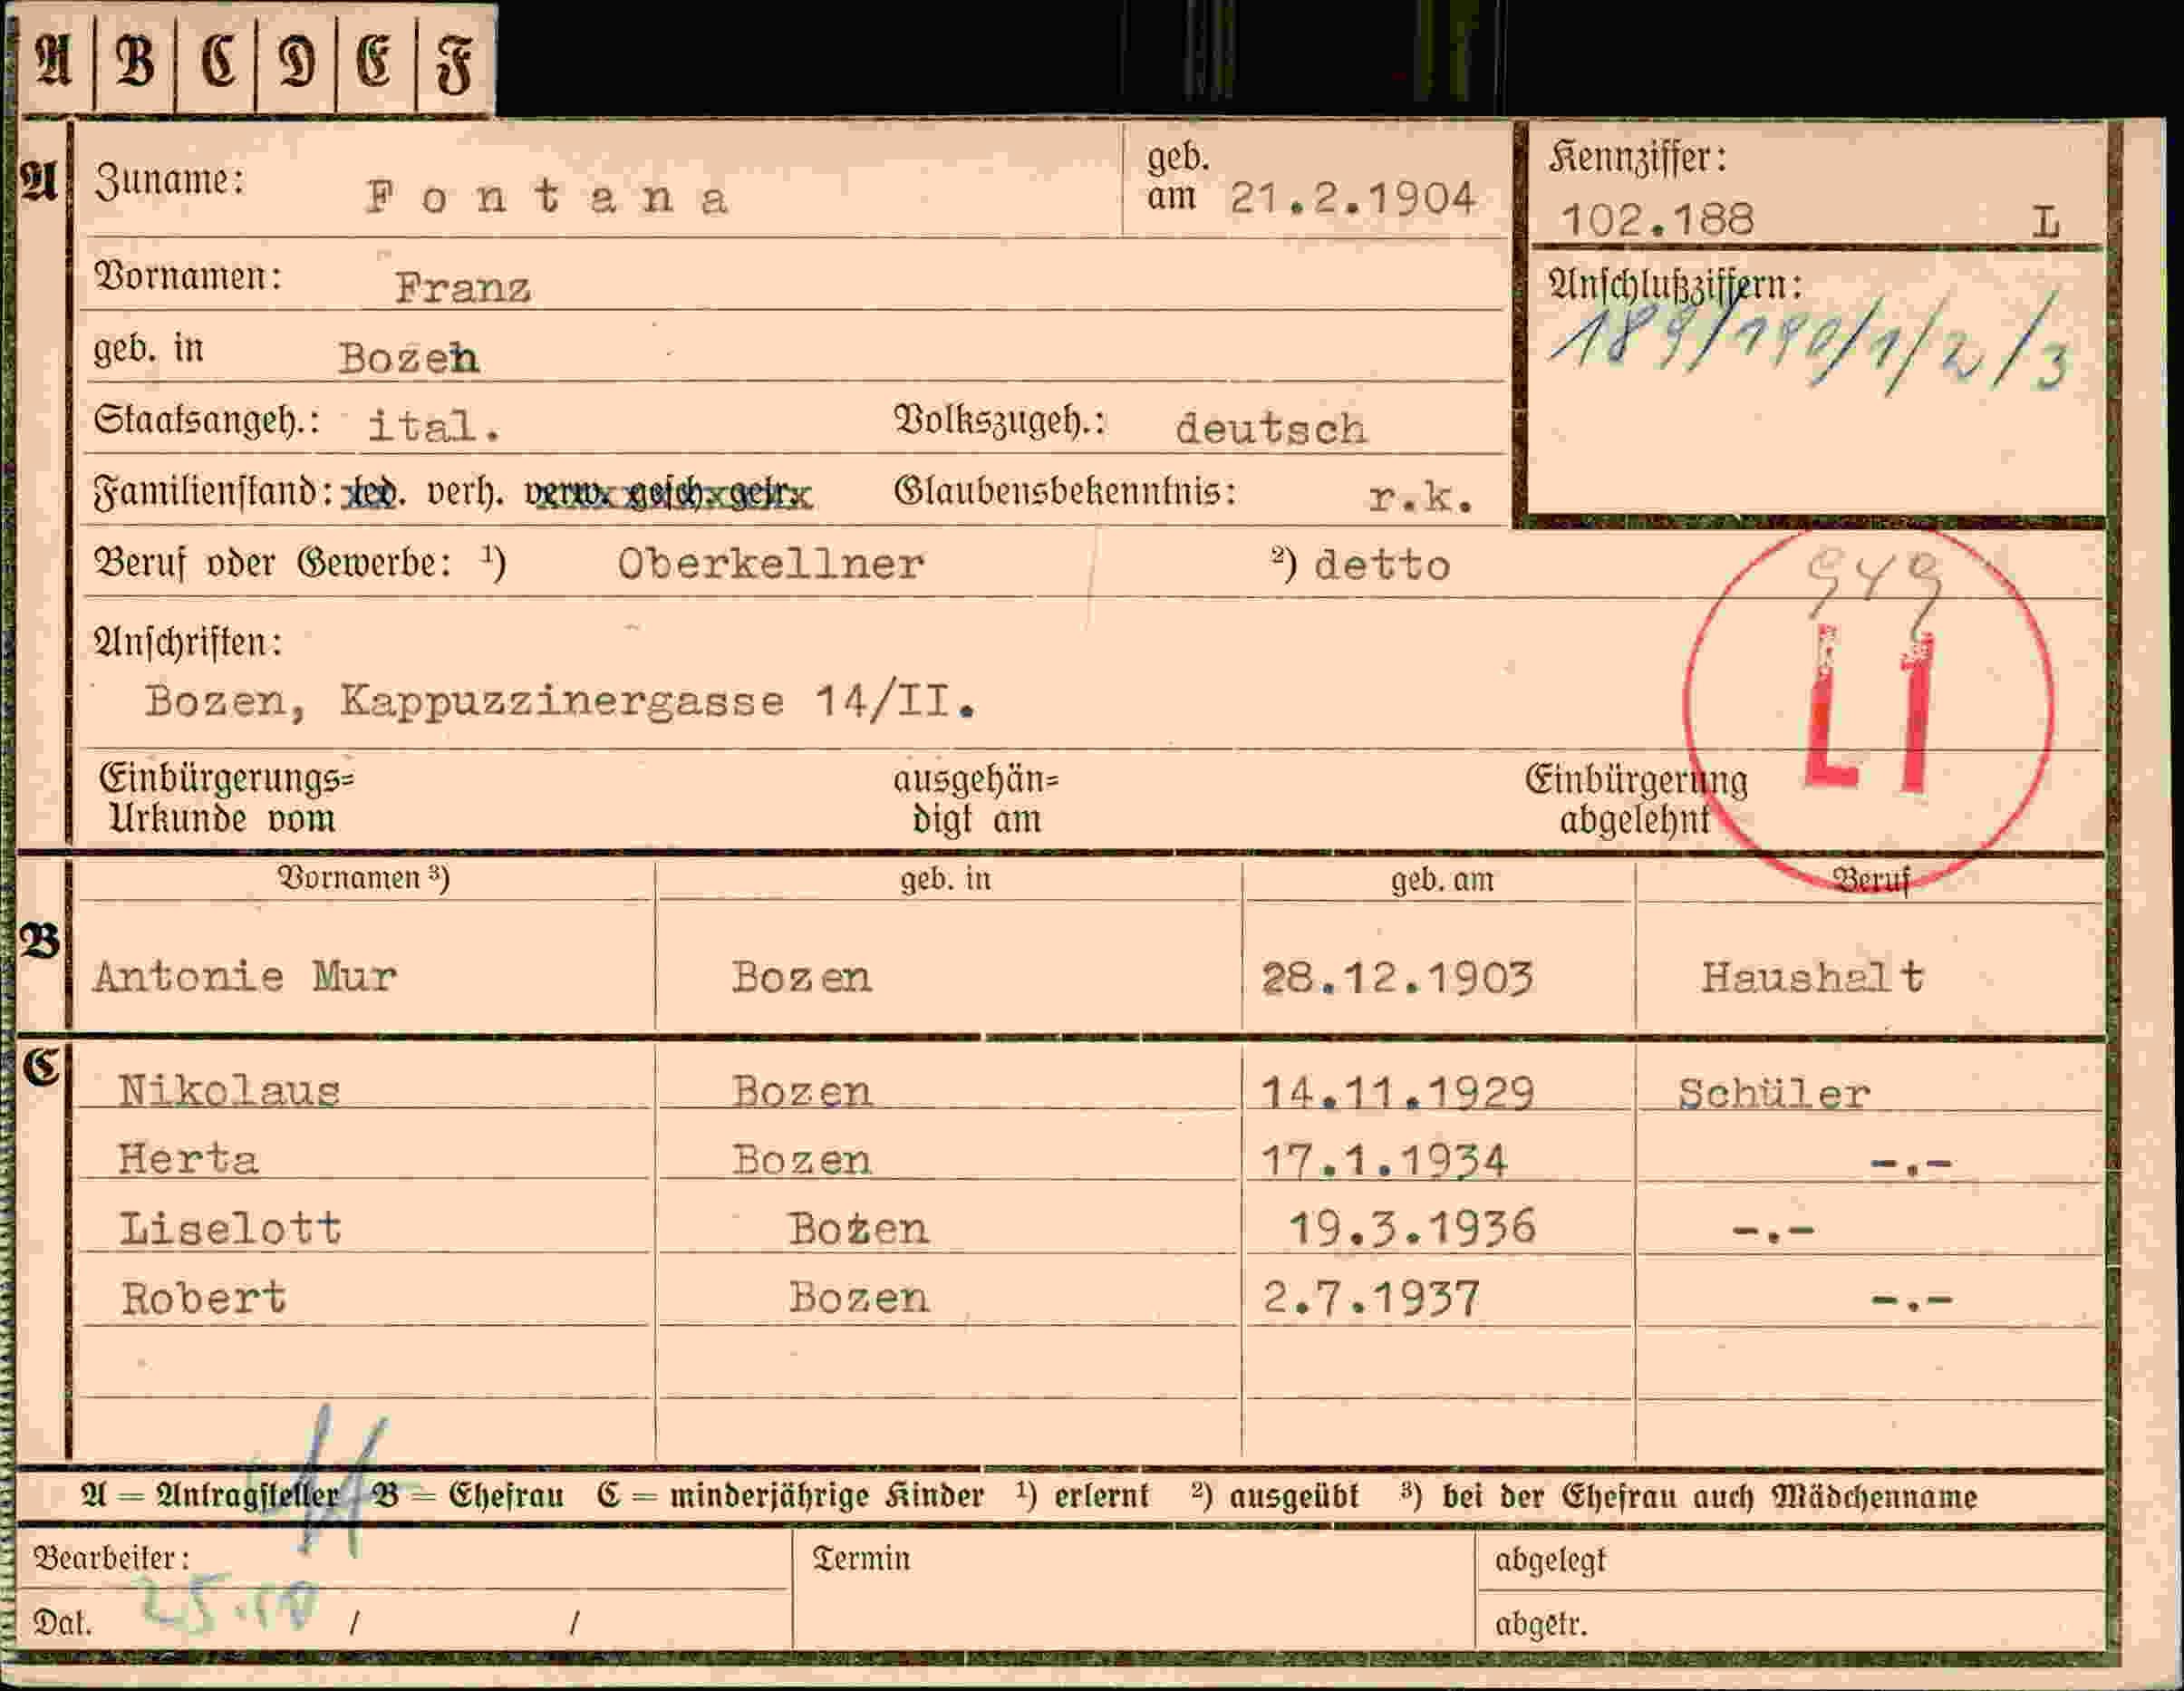 A B C D E F
A Zuname: Fontana geb. am 21.2.1904
Kennziffer: 102.188 L
Vornamen: Franz
Anschlußziffern:
189/190/1/2/3
geb. in Bozen
Staatsangeh.: ital. Volkszugeh.: deutsch
Familienstand: led. verh. verw. gesch. getr. Glaubensbekenntnis: r.k.
Beruf oder Gewerbe: ¹) Oberkellner ²) detto
949
LI
Anschriften:
Bozen, Kappuzzinergasse 14/II.
Einbürgerungs= Urkunde vom ausgehän= digt am Einbürgerung abgelehnt
Vornamen ³) geb. in geb. am Beruf
B Antonie Mur Bozen 28.12.1903 Haushalt
C Nikolaus Bozen 14.11.1929 Schüler
Herta Bozen 17.1.1934 -.-
Liselott Bozen 19.3.1936 -.-
Robert Bozen 2.7.1937 -.-
A = Antragsteller B = Ehefrau C = minderjährige Kinder ¹) erlernt ²) ausgeübt ³) bei der Ehefrau auch Mädchenname
Bearbeiter: Termin abgelegt
Dat. 25.10 / / abgetr.